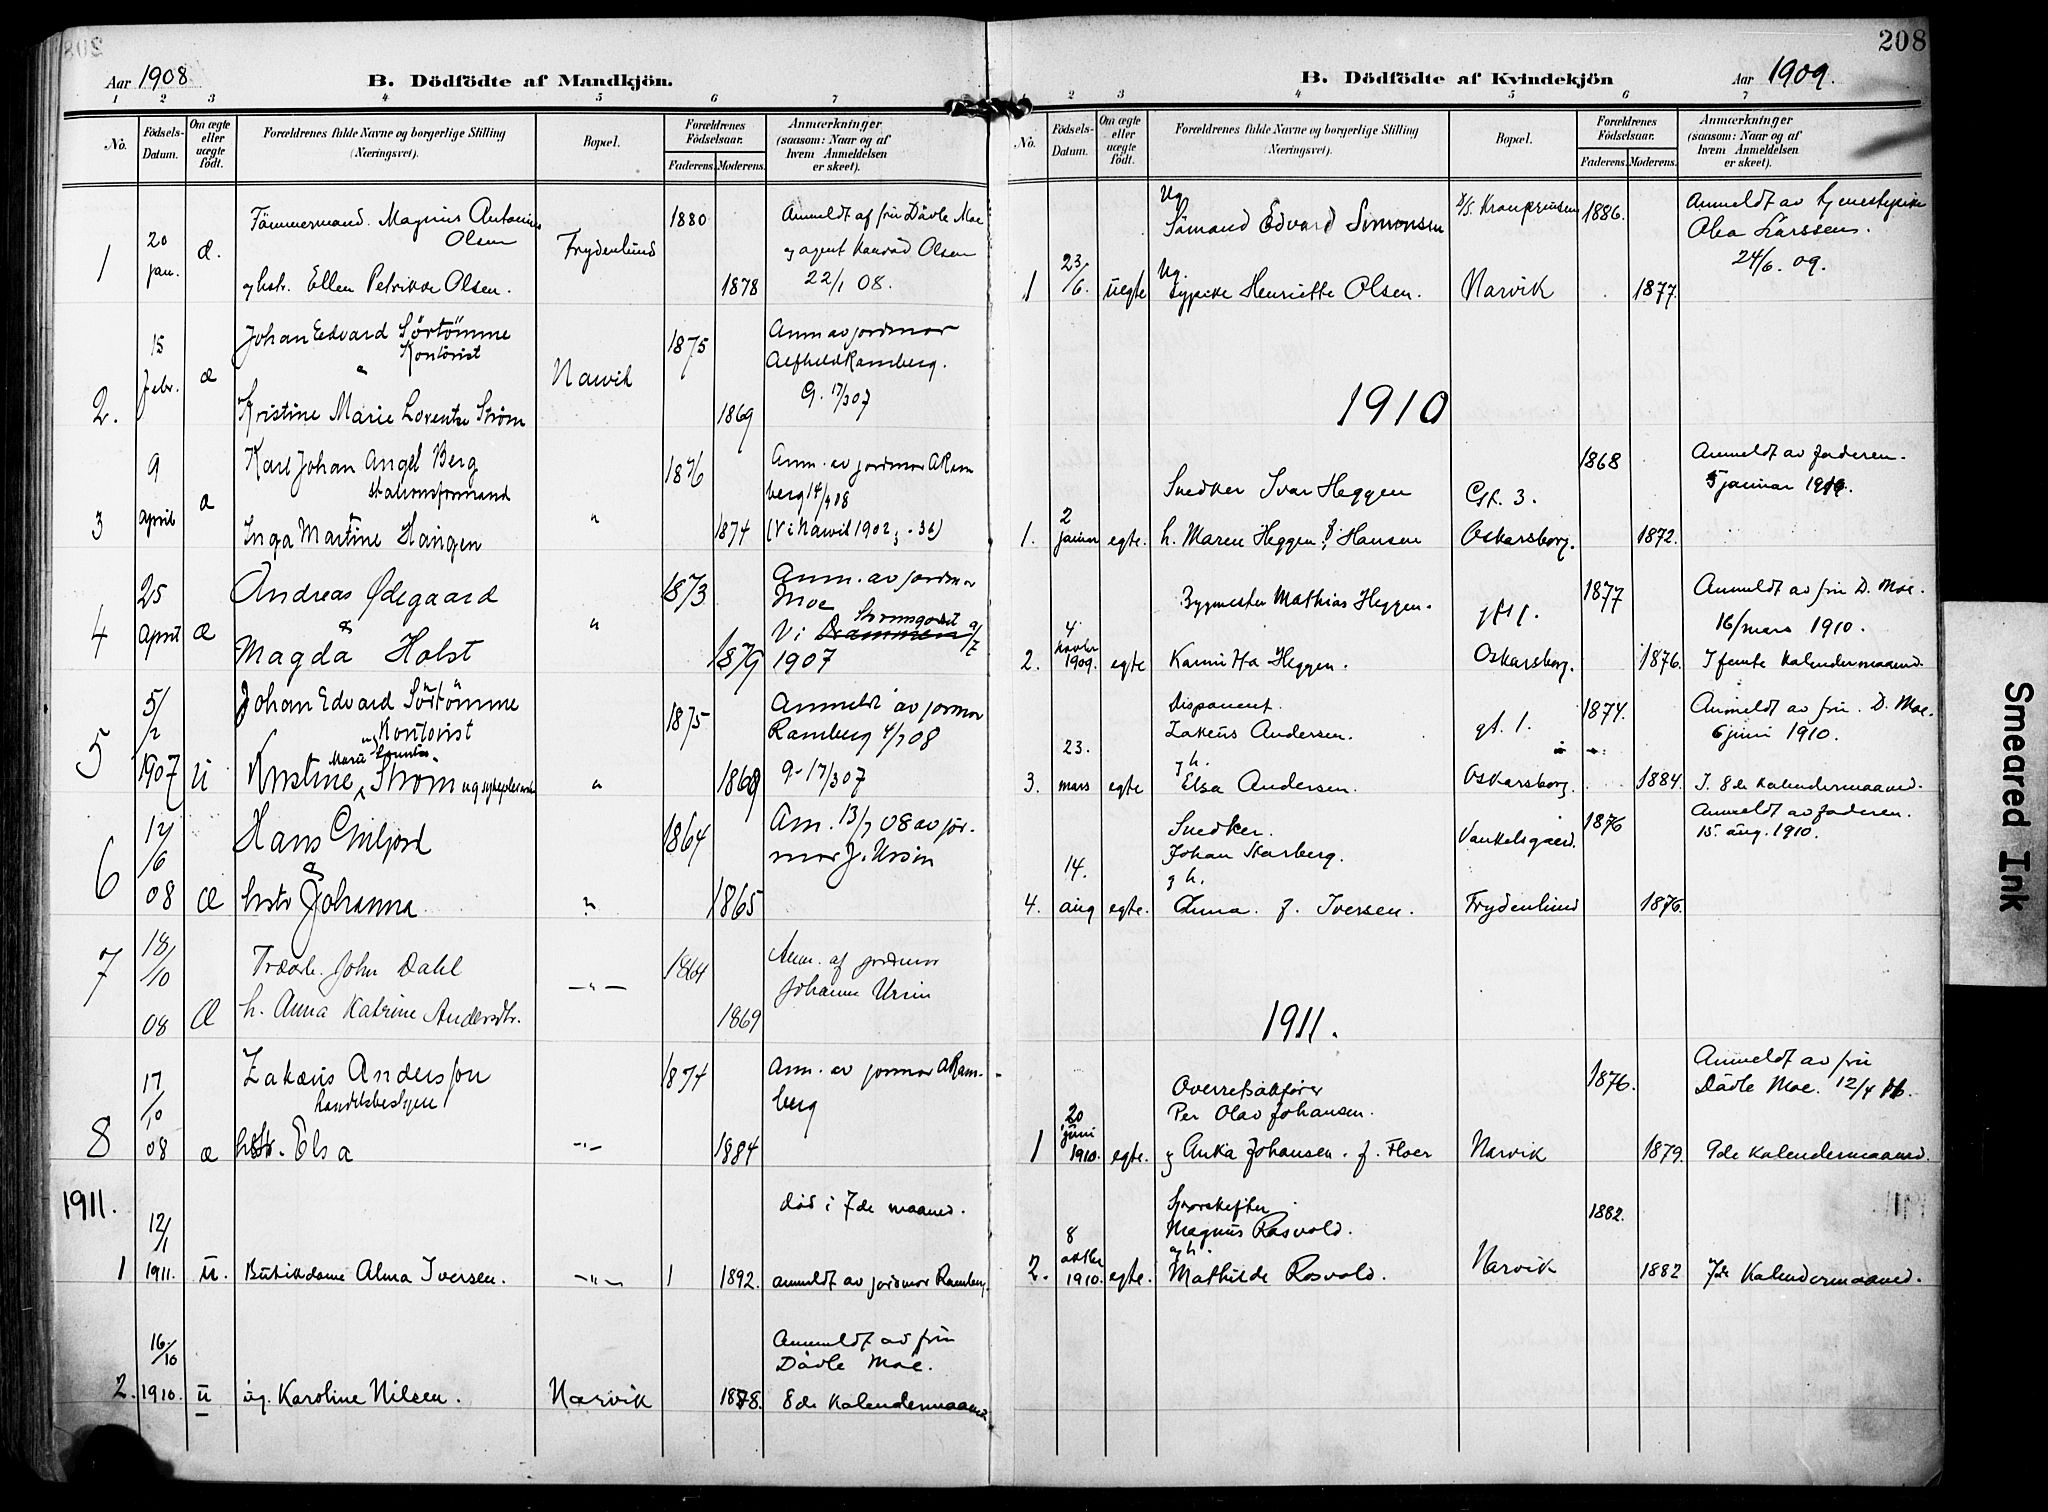 Aar 1908
B. Dödfödte af Mandkjön.
1 2 3 4 5 6 7
No.
Födsels-Datum.
Om ægte eller uægte födt.
Forældrenes fulde Navne og borgerlige Stilling (Næringsvei).
Bopæl.
Forældrenes Födselsaar.
Faderens. Moderens.
Anmærkninger (saasom: Naar og af hvem Anmeldelsen er skeet).
1 20 jan. æ.
Tömmermand. Magnus Antonius Olsen
og hstr. Ellen Petrikke Olsen.
Frydenlund
1880
1878
Anmeldt af fru Dådle Moe
og agent Konrad Olsen
22/1 08.
2. 15 febr. æ
Johan Edvard Sörtömme
Kontorist
Kristine Marie Lorentze Strøm
Narvik
1875
1869
Anm av jordmor
Alfhild Ramberg.
G. 17/3 07
3 9 april æ
Karl Johan Angel Berg
stationsformand
Inga Martine Haugen
"
1876
1874
Anm. av jordmor A Ramberg 14/4 08
(V i Narvik 1902, - 36)
4 25 April æ
Andreas Ødegaard
&
Magda Holst
"
1873
1879
Anm. av jordmor
Moe
Strømsgodset
V i Drammen 9/7
1907
5 5/2 1907 u
Johan Edvard Sörtömme
Kontorist
Marie Lorentze
Kristine Strøm
"
1875
1869
Anmeldt av jormor
Ramberg 4/7 08
g. 17/3 07
6 12/6 08 æ
Hans
&
hstr Johanna
"
1864
1865
Am. 13/7 08 av jormor J. Ursin
7 18/10 08 æ
Træarb. John Dahl
h. Anna Katrine Andersdtr.
— " —
1864
1869
Anm. af jordmor
Johanne Ursin
8 17/10 08 æ
Zakæus Andersson
Handelsbestyrer
hstr. Elsa
— " —
1874
1884
Anm. av jormor A Ramberg
1911.
1 12/1 1911. u.
Butikdame Alma Iversen.
— " —
1892.
död i 7de maaned.
anmeldt av jordmor Ramberg.
2. 16/10 1910. u
ug. Karoline Nilsen.
Narvik
1878.
Anmeldt av fru
Dådle Moe.
8de kalendermaaned
208
B. Dödfödte af Kvindekjön
Aar 1909.
1 2 3 4 5 6 7
No.
Födsels-Datum.
Om ægte eller uægte födt.
Forældrenes fulde Navne og borgerlige Stilling (Næringsvei).
Bopæl.
Forældrenes Födselsaar.
Faderens. Moderens.
Anmærkninger (saasom: Naar og af hvem Anmeldelsen er skeet).
1 23/6 uegte
Ug.
Sömand Edvard Simonsen
Ug.
typike Henriette Olsen.
D/S. Kronprinsen
Narvik
1886.
1877.
Anmeldt av tjenestepike
Olea Larssen.
24/6. 09.
1910
1. 2 januar egte.
Snedker Ivar Heggen
h. Maren Heggen f. Hansen
Gt. 3.
Oskarsborg.
1868
1872.
Anmeldt av faderen.
5 januar 1910.
2. 4 novbr 1909. egte
Bygmester Mathias Heggen.
Heggen.
gt 1.
Oskarsborg.
1877
1876.
Anmeldt av fru D. Moe.
16/mars 1910.
I femte kalendermaaned.
3. 23. mars egte
Disponent.
Zakeus Andersen.
g h.
Elsa Andersen.
gt. 1.
Oskarsborg.
1874.
1884.
Anmeldt av fru. D. Moe.
6 juni 1910.
I. 8de kalendermaaned.
4. 14. aug egte.
Snedker.
Johan Skarberg.
g h.
Anna. f. Iversen.
Vankelsgaard.
Frydenlund
1876
1876.
Anmeldt av faderen.
15. aug. 1910.
1911.
1 20 juni 1910. egte.
Overretssakfører
Per Olav Johansen.
g Anka Johansen. f. Floer
Narvik
1876.
1879.
Anmeldt av fru
Dådle Moe. 12/4 11.
9de kalendermaaned.
2. 8 oktbr 1910. egte.
Sporskifter
Magnus Rosvold.
og h.
Mathilde Rosvold.
Narvik
1882.
1882
7de Kalendermaaned.
Smeared Ink